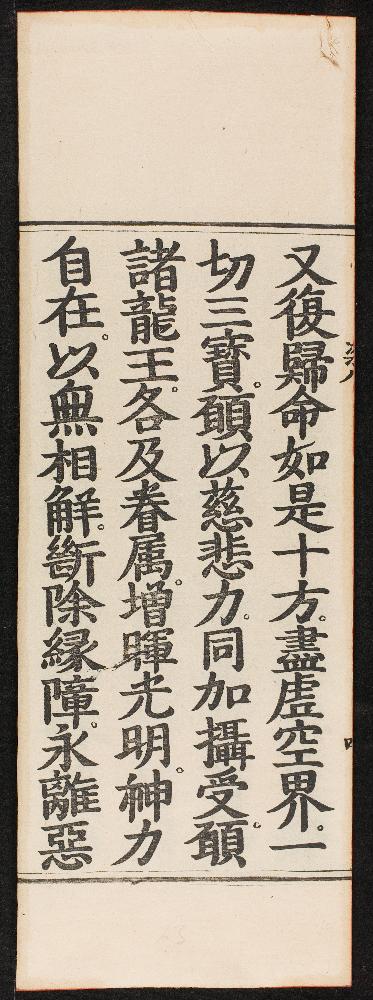 又復歸命如是十方。盡虛空界。一
切三寶。願以慈悲力。同加攝受。願
諸龍王。各及眷属。增暉光明。神力
自在。以無相解。斷除緣障。永離惡